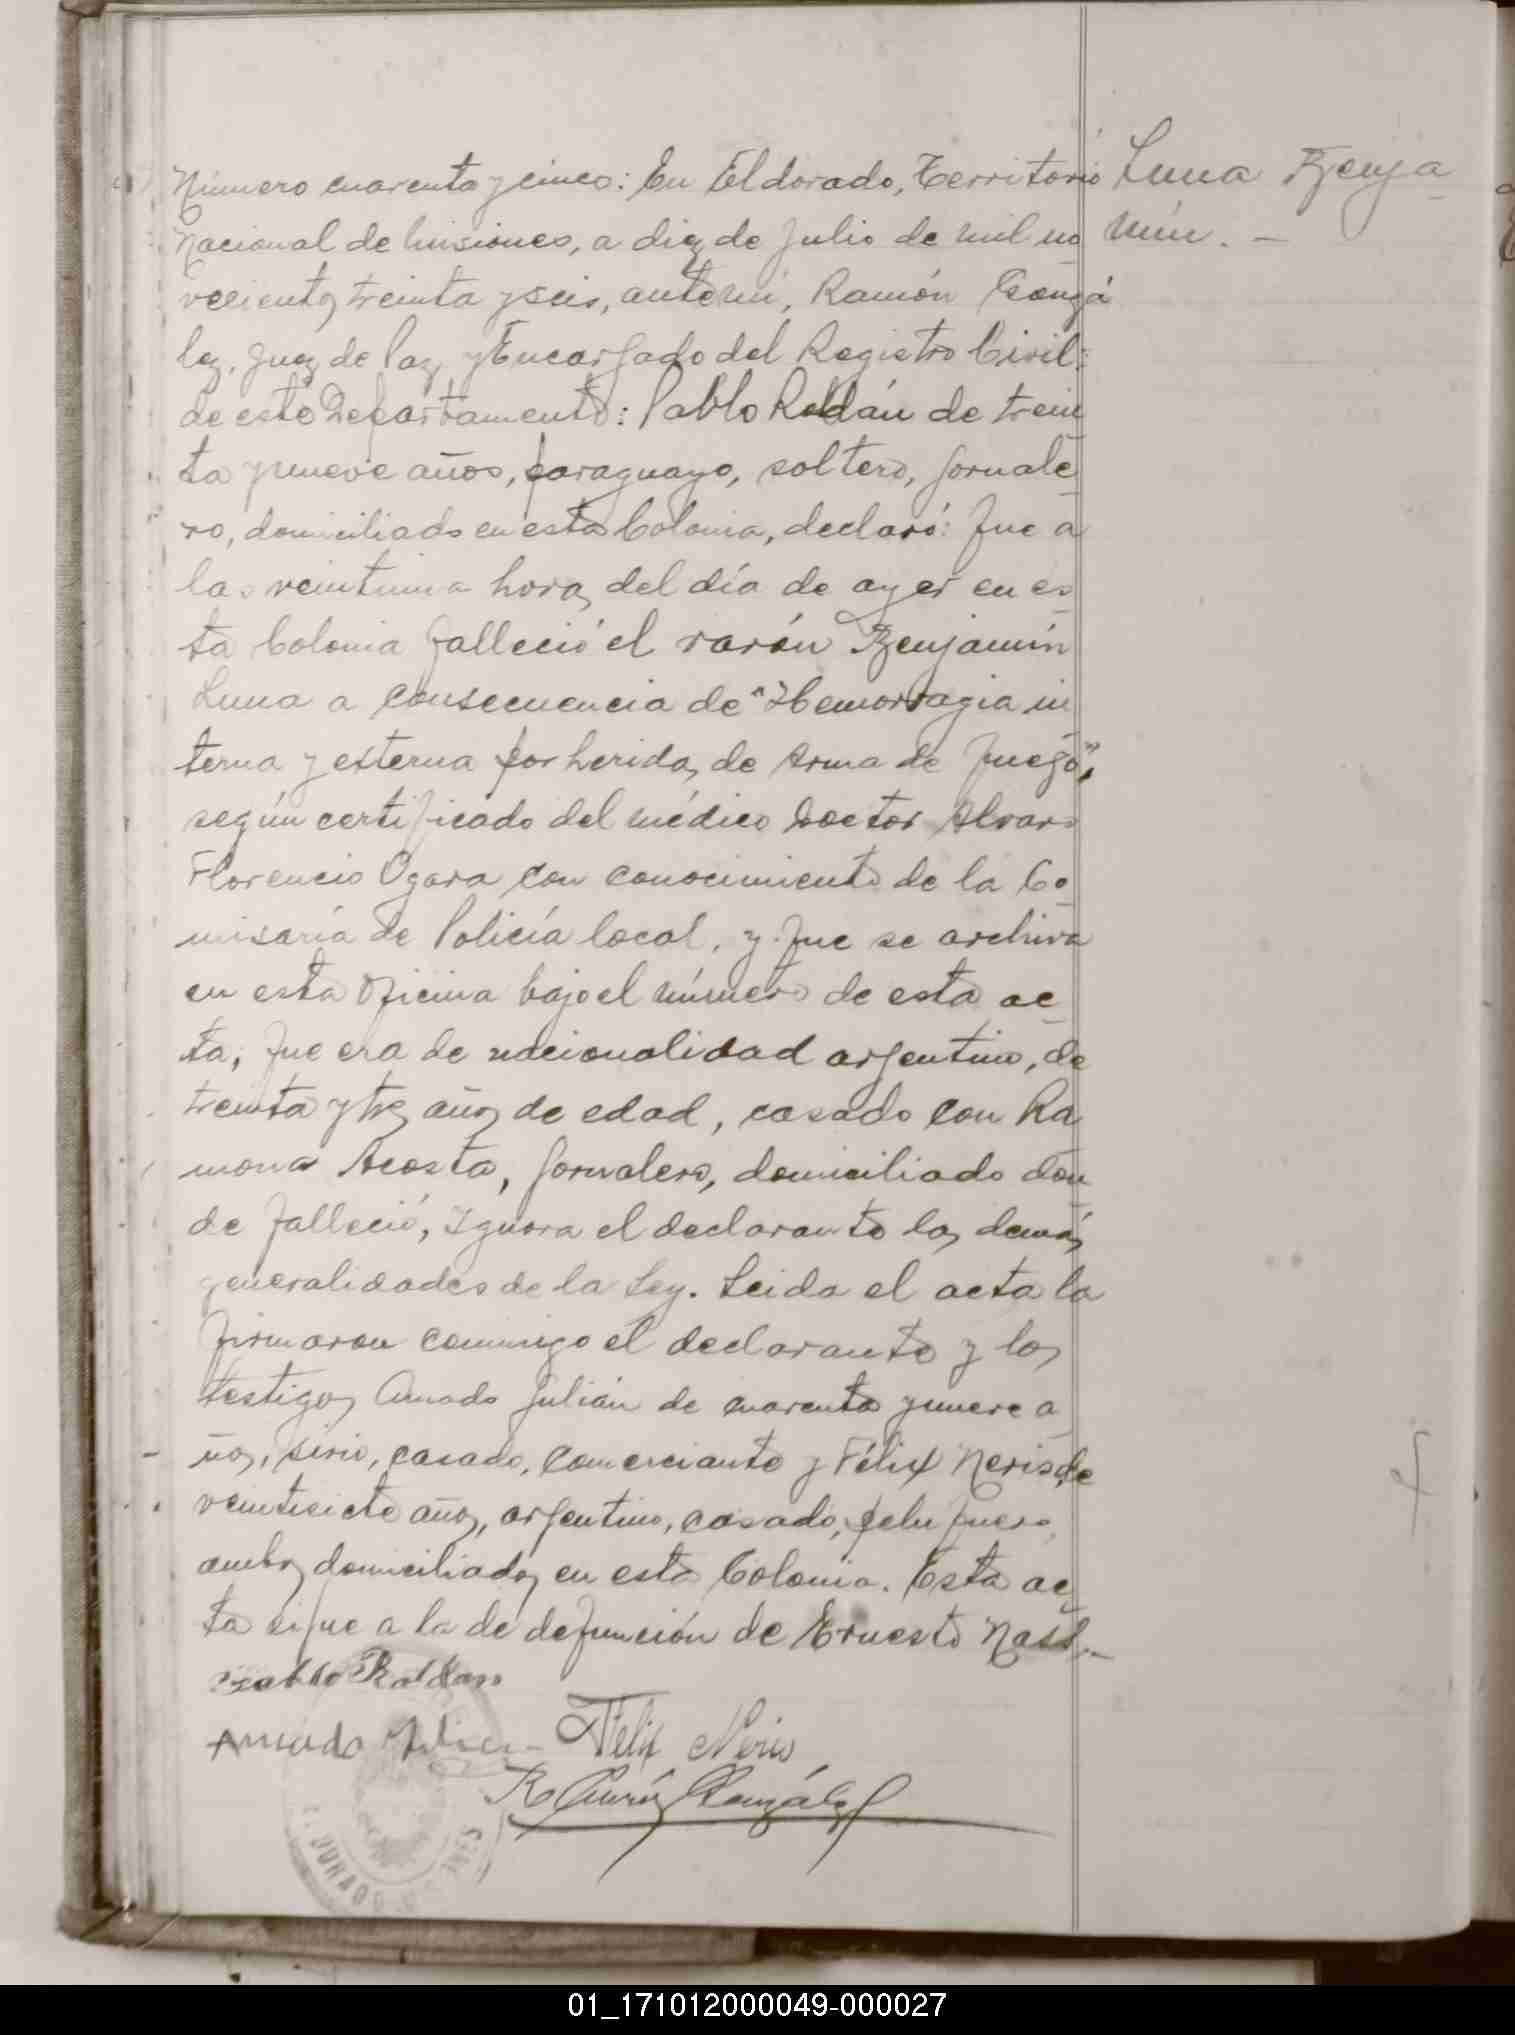 Luna Benja
mín. —
Número cuarenta y cinco: En Eldorado, Territorio
Nacional de Misiones, a diez de Julio de mil no
vecientos treinta y seis, ante mi, Ramón Gonzá
lez, Juez de Paz y Encargado del Registro Civil:
de este Departamento: Pablo Roldán de trein
ta y nueve años, paraguayo, soltero, jornale
ro, domiciliado en esta Colonia, declaró: Que a
las veintiuna horas del día de ayer en es
ta Colonia falleció el varón Benjamín
Luna a consecuencia de "Hemorragia in
terna y esterna por heridas de Arma de fuego",
según certificado del médico Doctor Alvaro
Florencio Ogara con conocimiento de la Co
misaría de Policía local, y que se archiva
en esta Oficina bajo el número de esta ac
ta; que era de nacionalidad argentino, de
treinta y tres años de edad, casado con Ra
mona Acosta, jornalero, domiciliado don
de falleció, Ignora el declarante las demás
generalidades de la Ley. Leida el acta la
firmaron conmigo el declarante y los
testigos Amado Julián de cuarenta y nueve a
ños, sirio, casado, comerciante y Félix Neris de
veintisiete años, argentino, casado, peluquero,
ambos domiciliados en esta Colonia. Esta ac
ta sigue a la de defunción de Ernesto Nass.—
Pablo Roldan
Amado Felix Neris
Ramón González
01_171012000049-000027